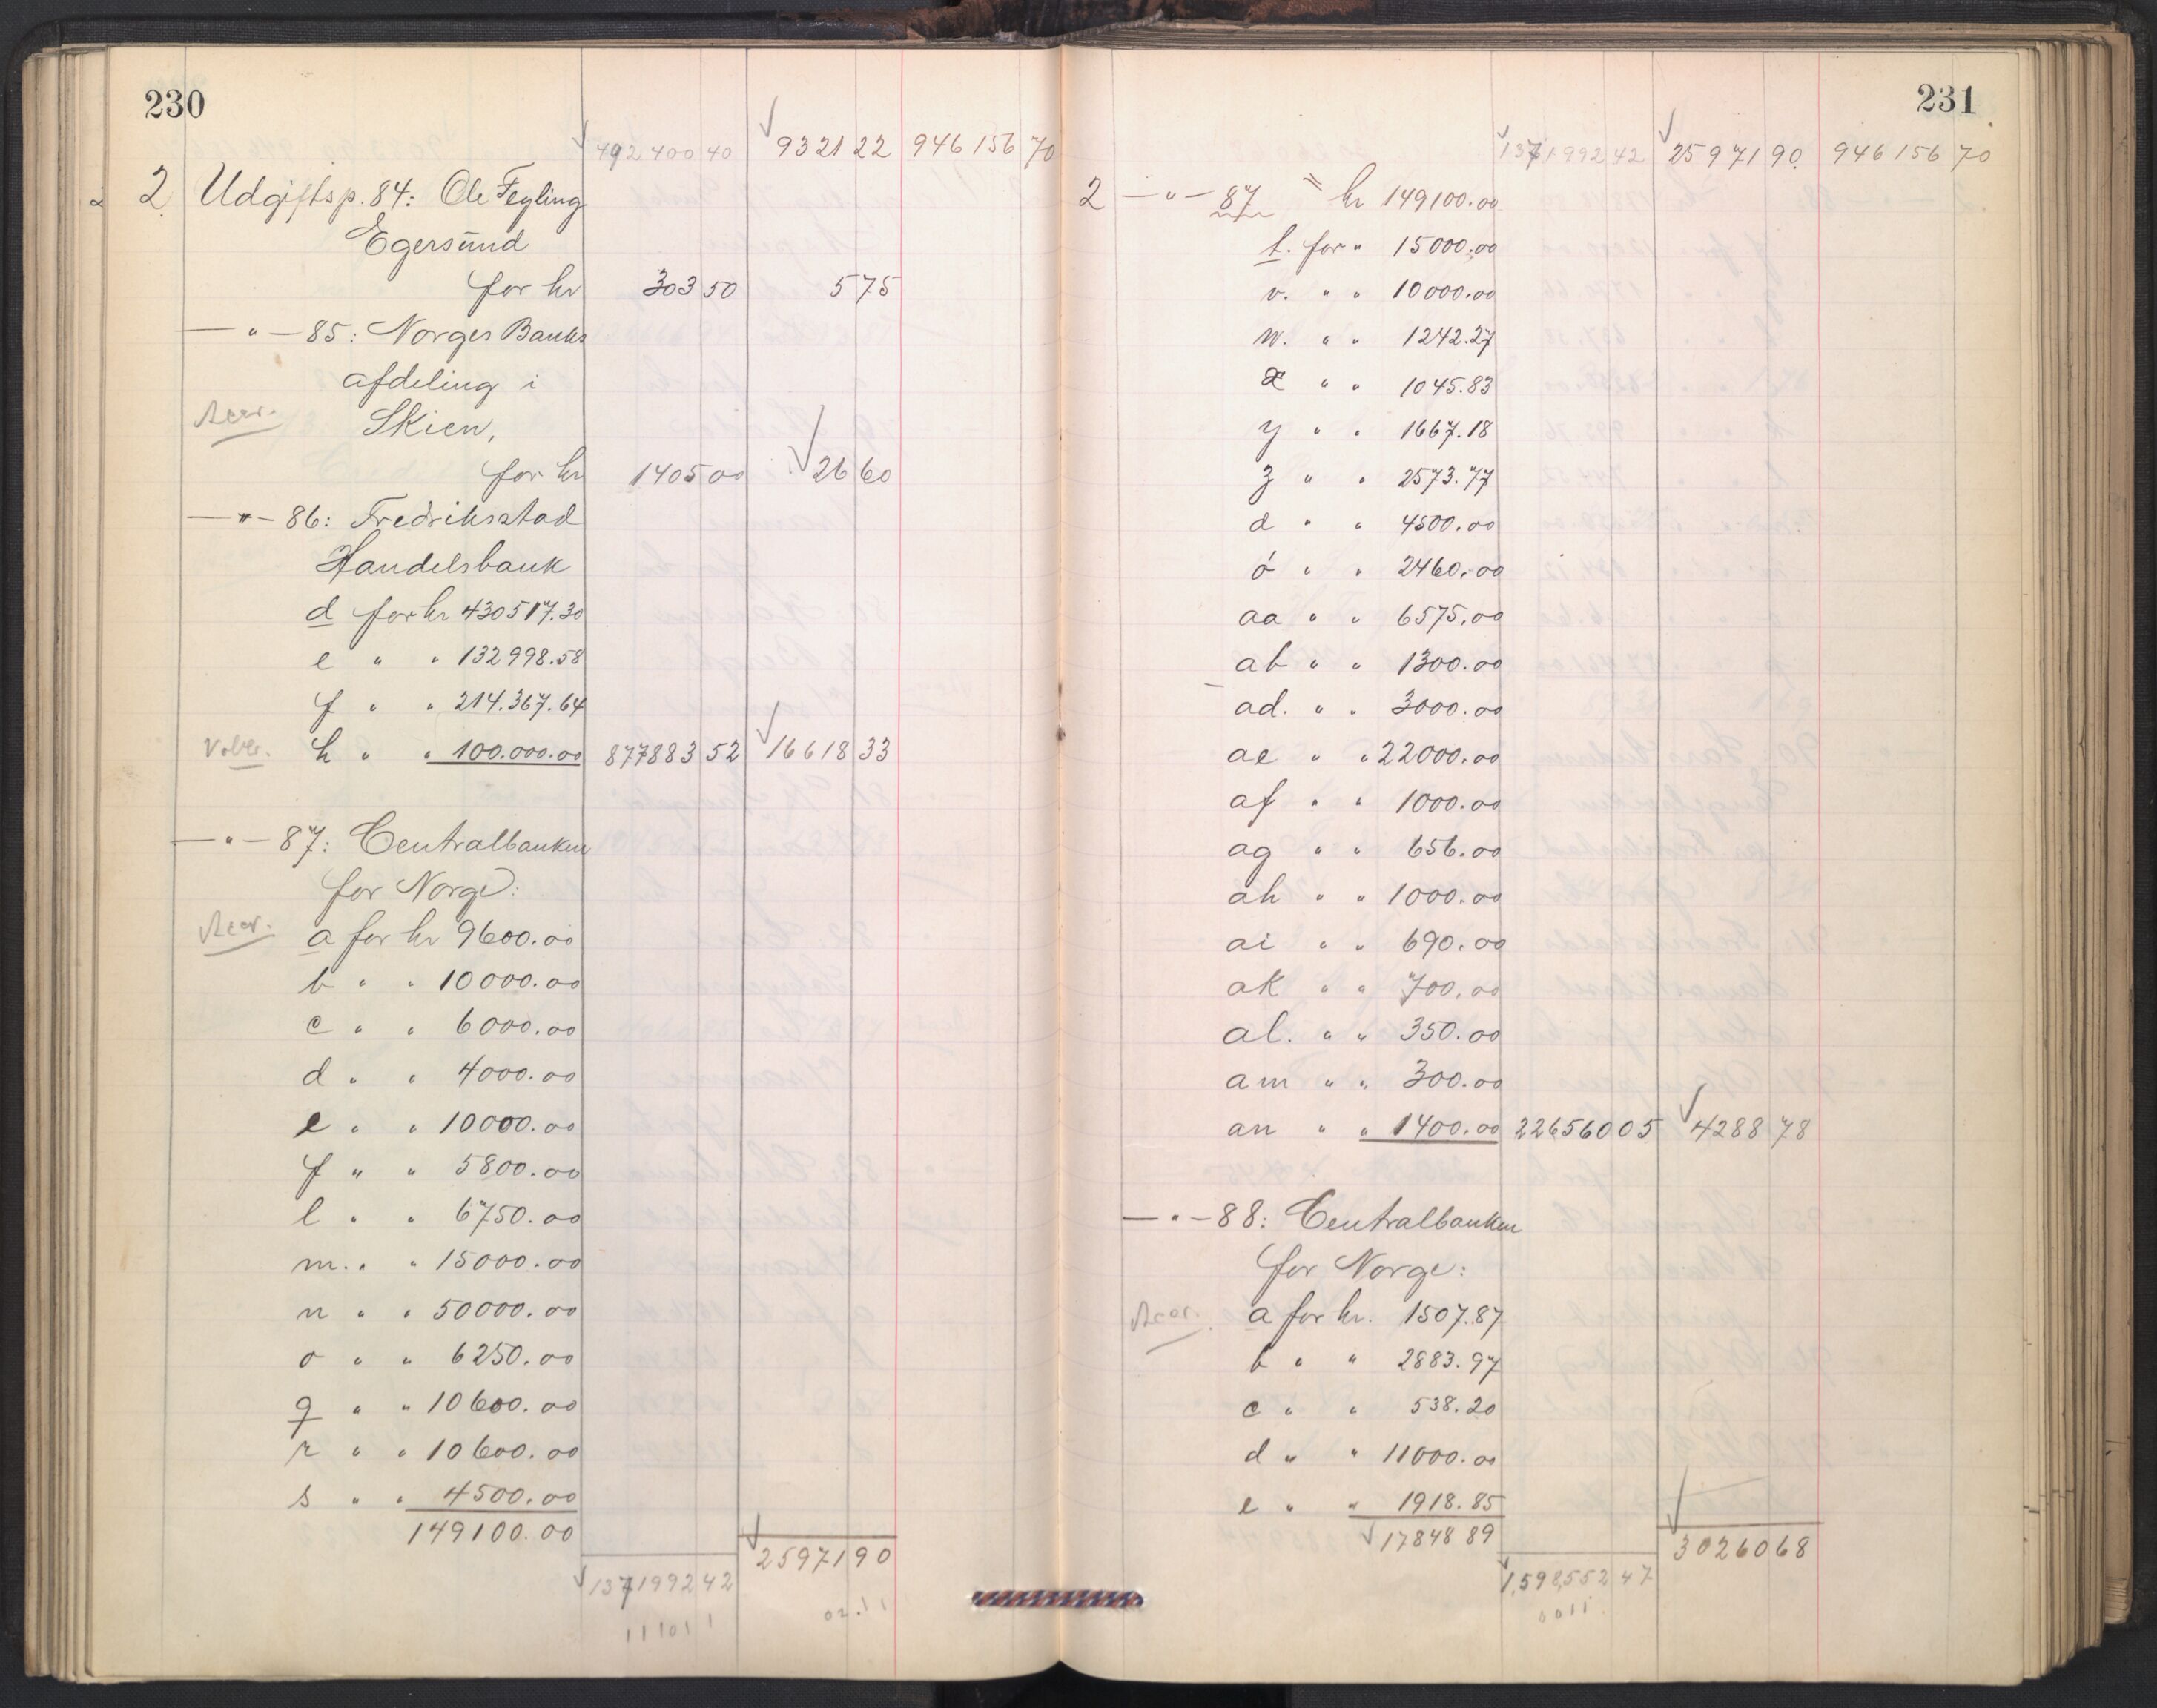 230
492 400 40 9321 22 946 156 70
2 2 Udgiftsp. 84: Ole Feyling
Egersund
for kr 303 50 5 75
— " — 85: Norges Banks
afdeling i
Skien,
for kr 1405 00 26 60
— " — 86: Fredriksstad
Handelsbank
d for kr 430517.30
e " " 132998.58
f " " 214.367.64
h " " 100.000.00 877883 52 16618 33
— " — 87: Centralbanken
for Norge:
a for kr 9600.00
b " " 10000.00
c " " 6000.00
d " " 4000.00
e " " 10000.00
f " " 5800.00
l " " 6750.00
m. " " 15000.00
n " " 50000.00
o " " 6250.00
q " " 10600.00
r " " 10600.00
s " " 4500.00
149100.00
25971 90
1371992 42
02.11
111011
231
1371992 42 25971 90 946 156 70
2 — " — 87 kr 149100.00
t. for " 15000.00
v. " " 10000.00
w. " " 1242.27
x " " 1045.83
y " " 1667.18
z " " 2573.77
" " 4500.00
ó " " 2460.00
aa " " 6575.00
ab " " 1300.00
ad. " " 3000.00
ae " " 22000.00
af " " 1000.00
ag " " 656.00
ah " " 1000.00
ai " " 690.00
ak " " 700.00
al. " " 350.00
am " " 300.00
an " " 1400.00 226560 05 4288 78
— " — 88: Centralbanken
for Norge:
a for kr. 1507.87
b " " 2883.97
c " " 538.20
d " " 11000.00
e " " 1918.85
17848 89
30260 68
1,598,552 47
0011